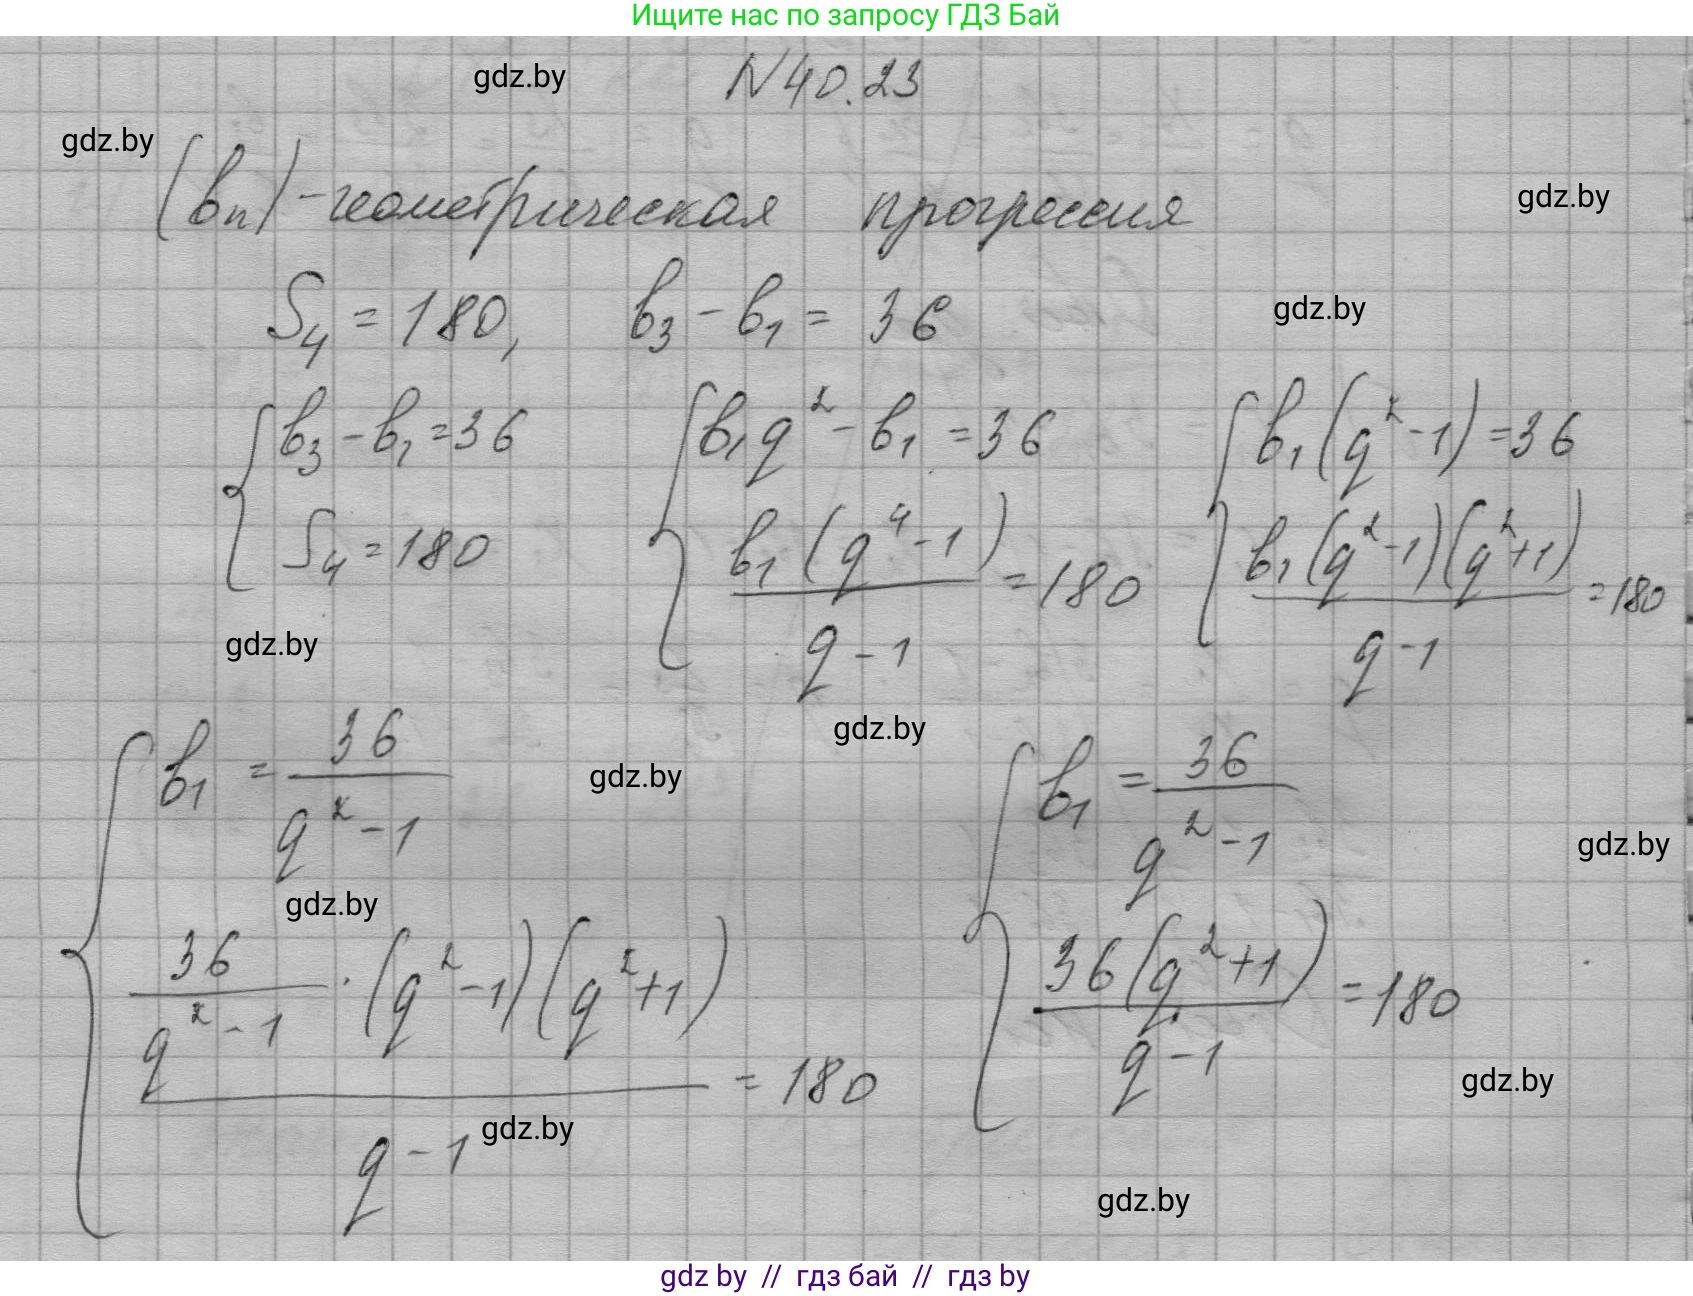 Ищите нас по запросу ГДЗ Бай
gdz.by
N 40.23
gdz.by
(bₙ) - геометрическая прогрессия
gdz.by
S₄ = 180, b₃ - b₁ = 36
gdz.by
{ b₃ - b₁ = 36 { b₁q² - b₁ = 36 { b₁(q² - 1) = 36
S₄ = 180 b₁(q⁴ - 1) / (q - 1) = 180 b₁(q² - 1)(q² + 1) / (q - 1) = 180
gdz.by
gdz.by
gdz.by
{ b₁ = 36 / (q² - 1) { b₁ = 36 / (q² - 1)
gdz.by
gdz.by
36 / (q² - 1) · (q² - 1)(q² + 1) / (q - 1) = 180 36(q² + 1) / (q - 1) = 180
gdz.by
gdz.by
gdz.by
gdz by // гдз бай // гдз by